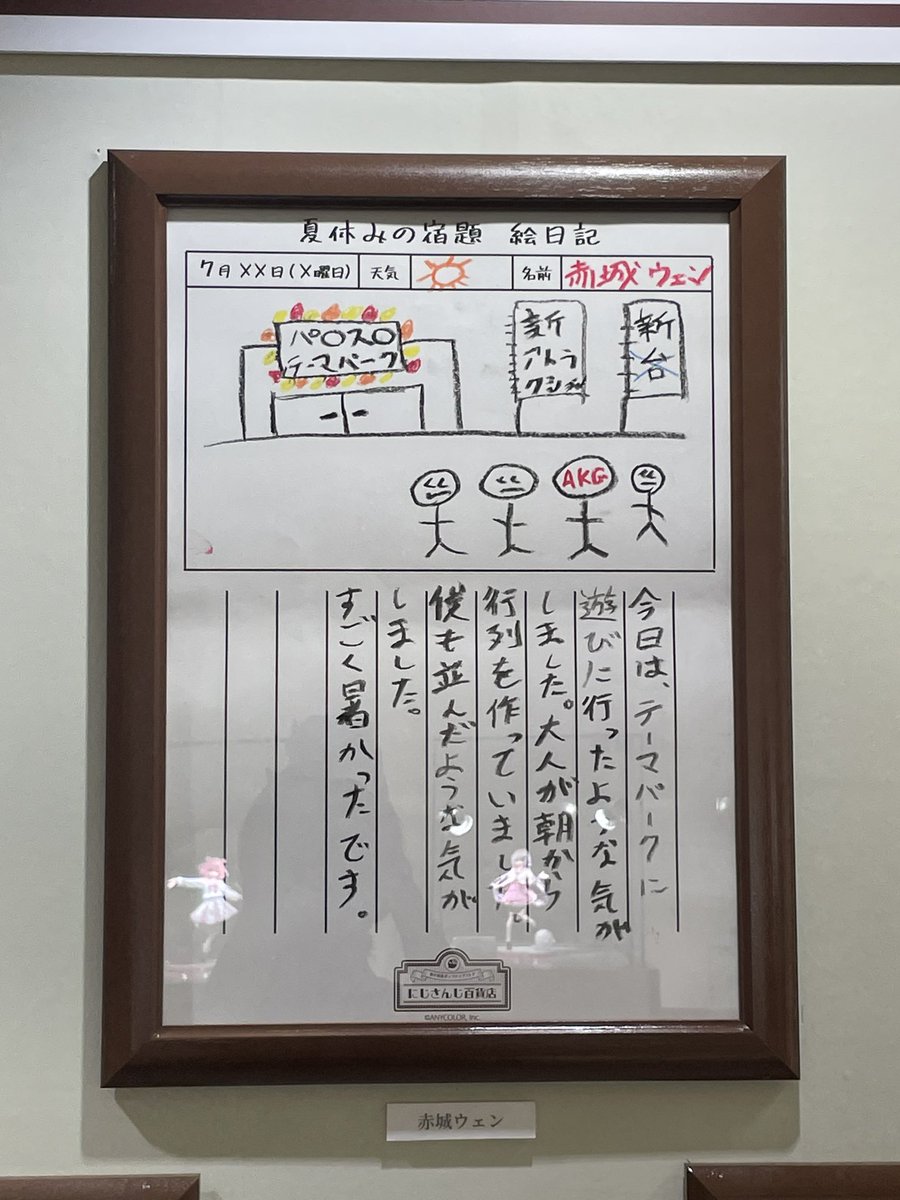 夏休みの宿題 絵日記
7月××日(×曜日) 天気 名前 赤城ウェン
パ〇ス〇
テーマパーク
新
アトラ
クション
新台
AKG
今日は、テーマパークに
遊びに行ったような気が
しました。大人が朝から
行列を作っていました
僕も並んだような気が
しました。
すごく暑かったです。
にじさんじ百貨店
©ANYCOLOR, Inc.
赤城ウェン